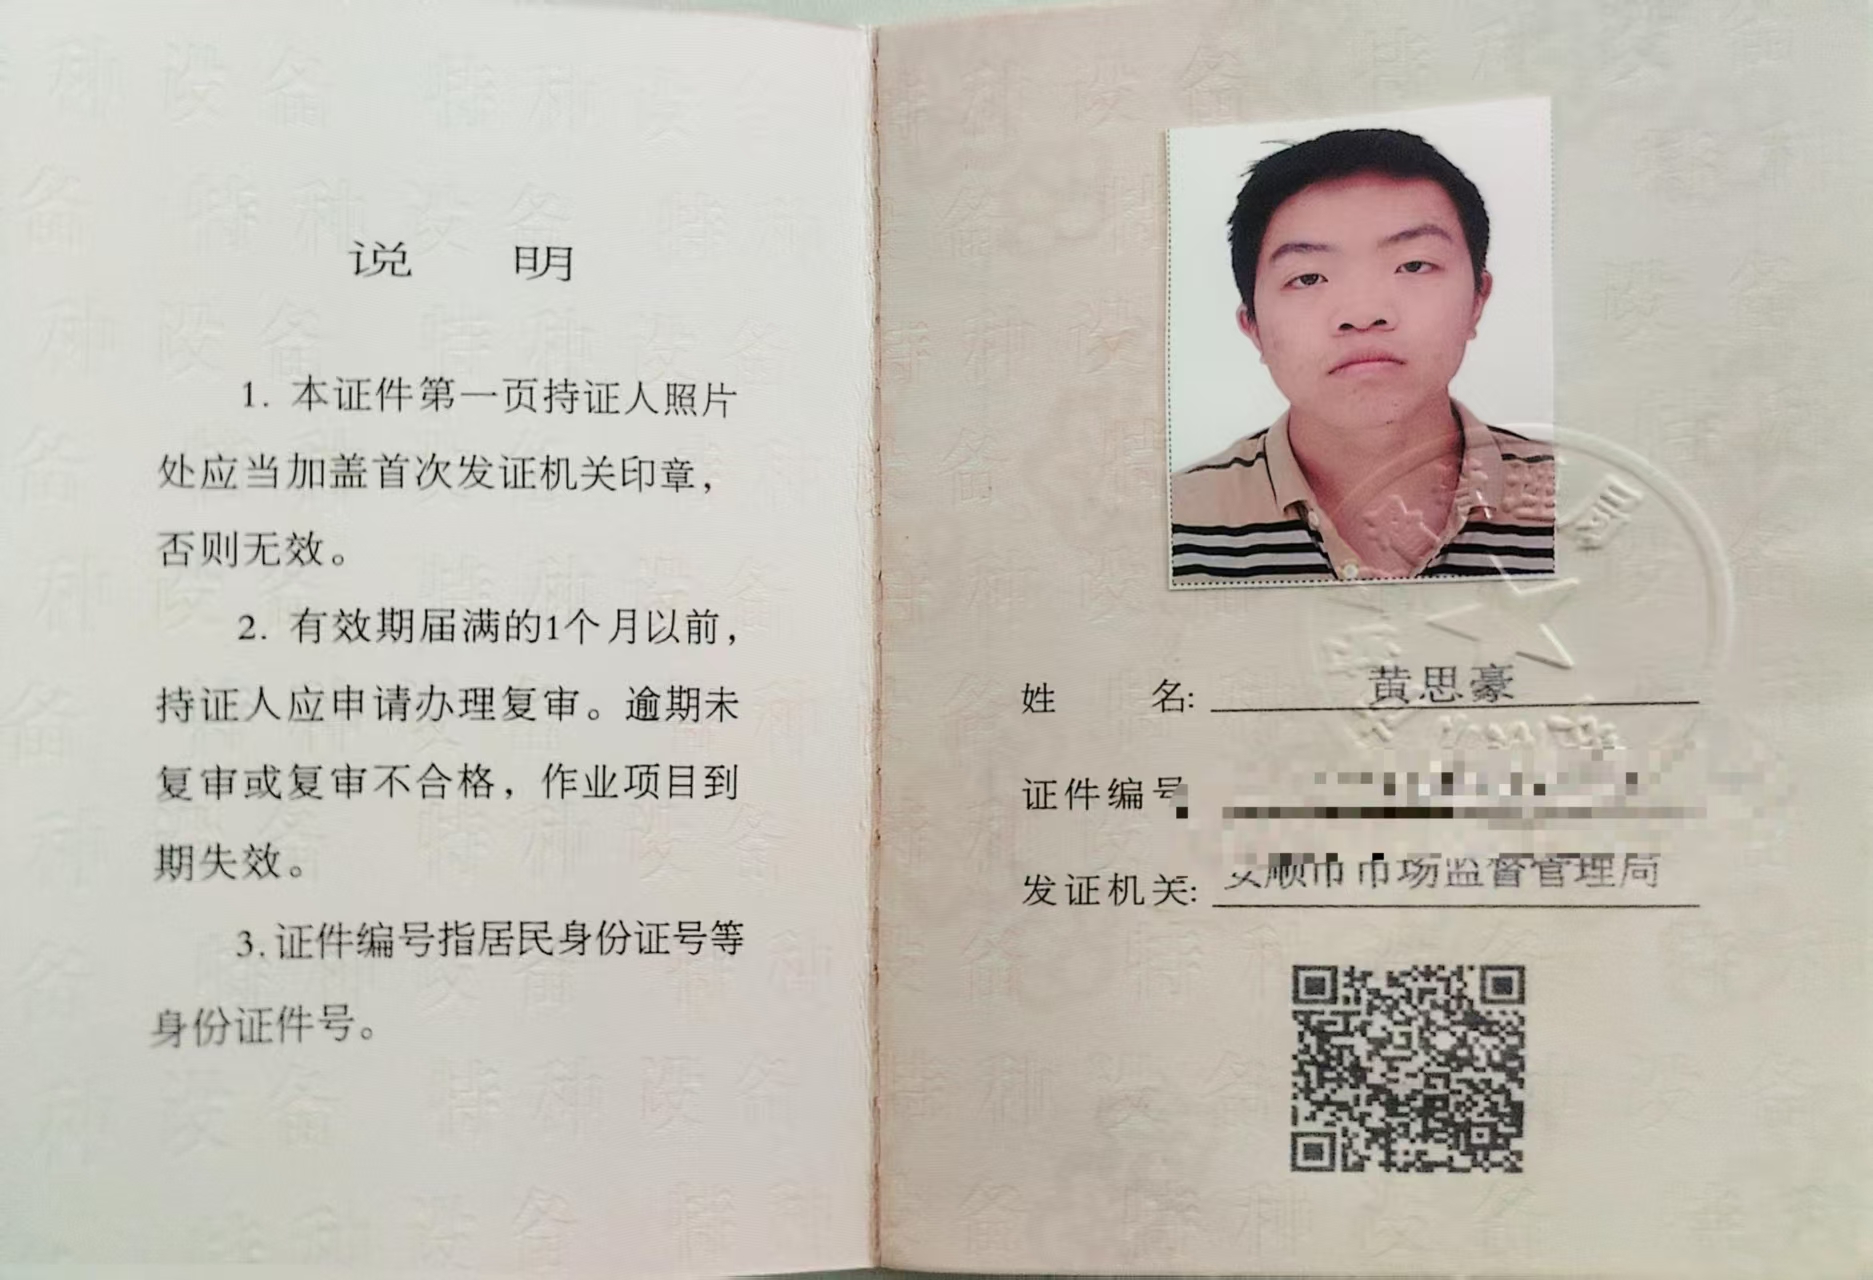 说 明
1. 本证件第一页持证人照片
处应当加盖首次发证机关印章，
否则无效。
2. 有效期届满的1个月以前，
持证人应申请办理复审。逾期未
复审或复审不合格，作业项目到
期失效。
3.证件编号指居民身份证号等
身份证件号。
姓 名: 黄思豪
证件编号
发证机关: 安顺市市场监督管理局